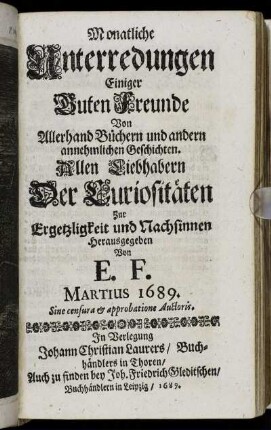 Monatliche
Unterredungen
Einiger
Guten Freunde
Von
Allerhand Büchern und andern
annehmlichen Geschichten.
Allen Liebhabern
Der Curiositäten
Zur
Ergetzligkeit und Nachsinnen
Herausgegeben
Von
E. F.
MARTIUS 1689.
Sine censura & approbatione Auctoris.
In Verlegung
Johann Christian Laurers / Buch-
händlers in Thoren /
Auch zu finden bey Joh. Friedrich Gleditschen /
Buchhändlern in Leipzig / 1689.